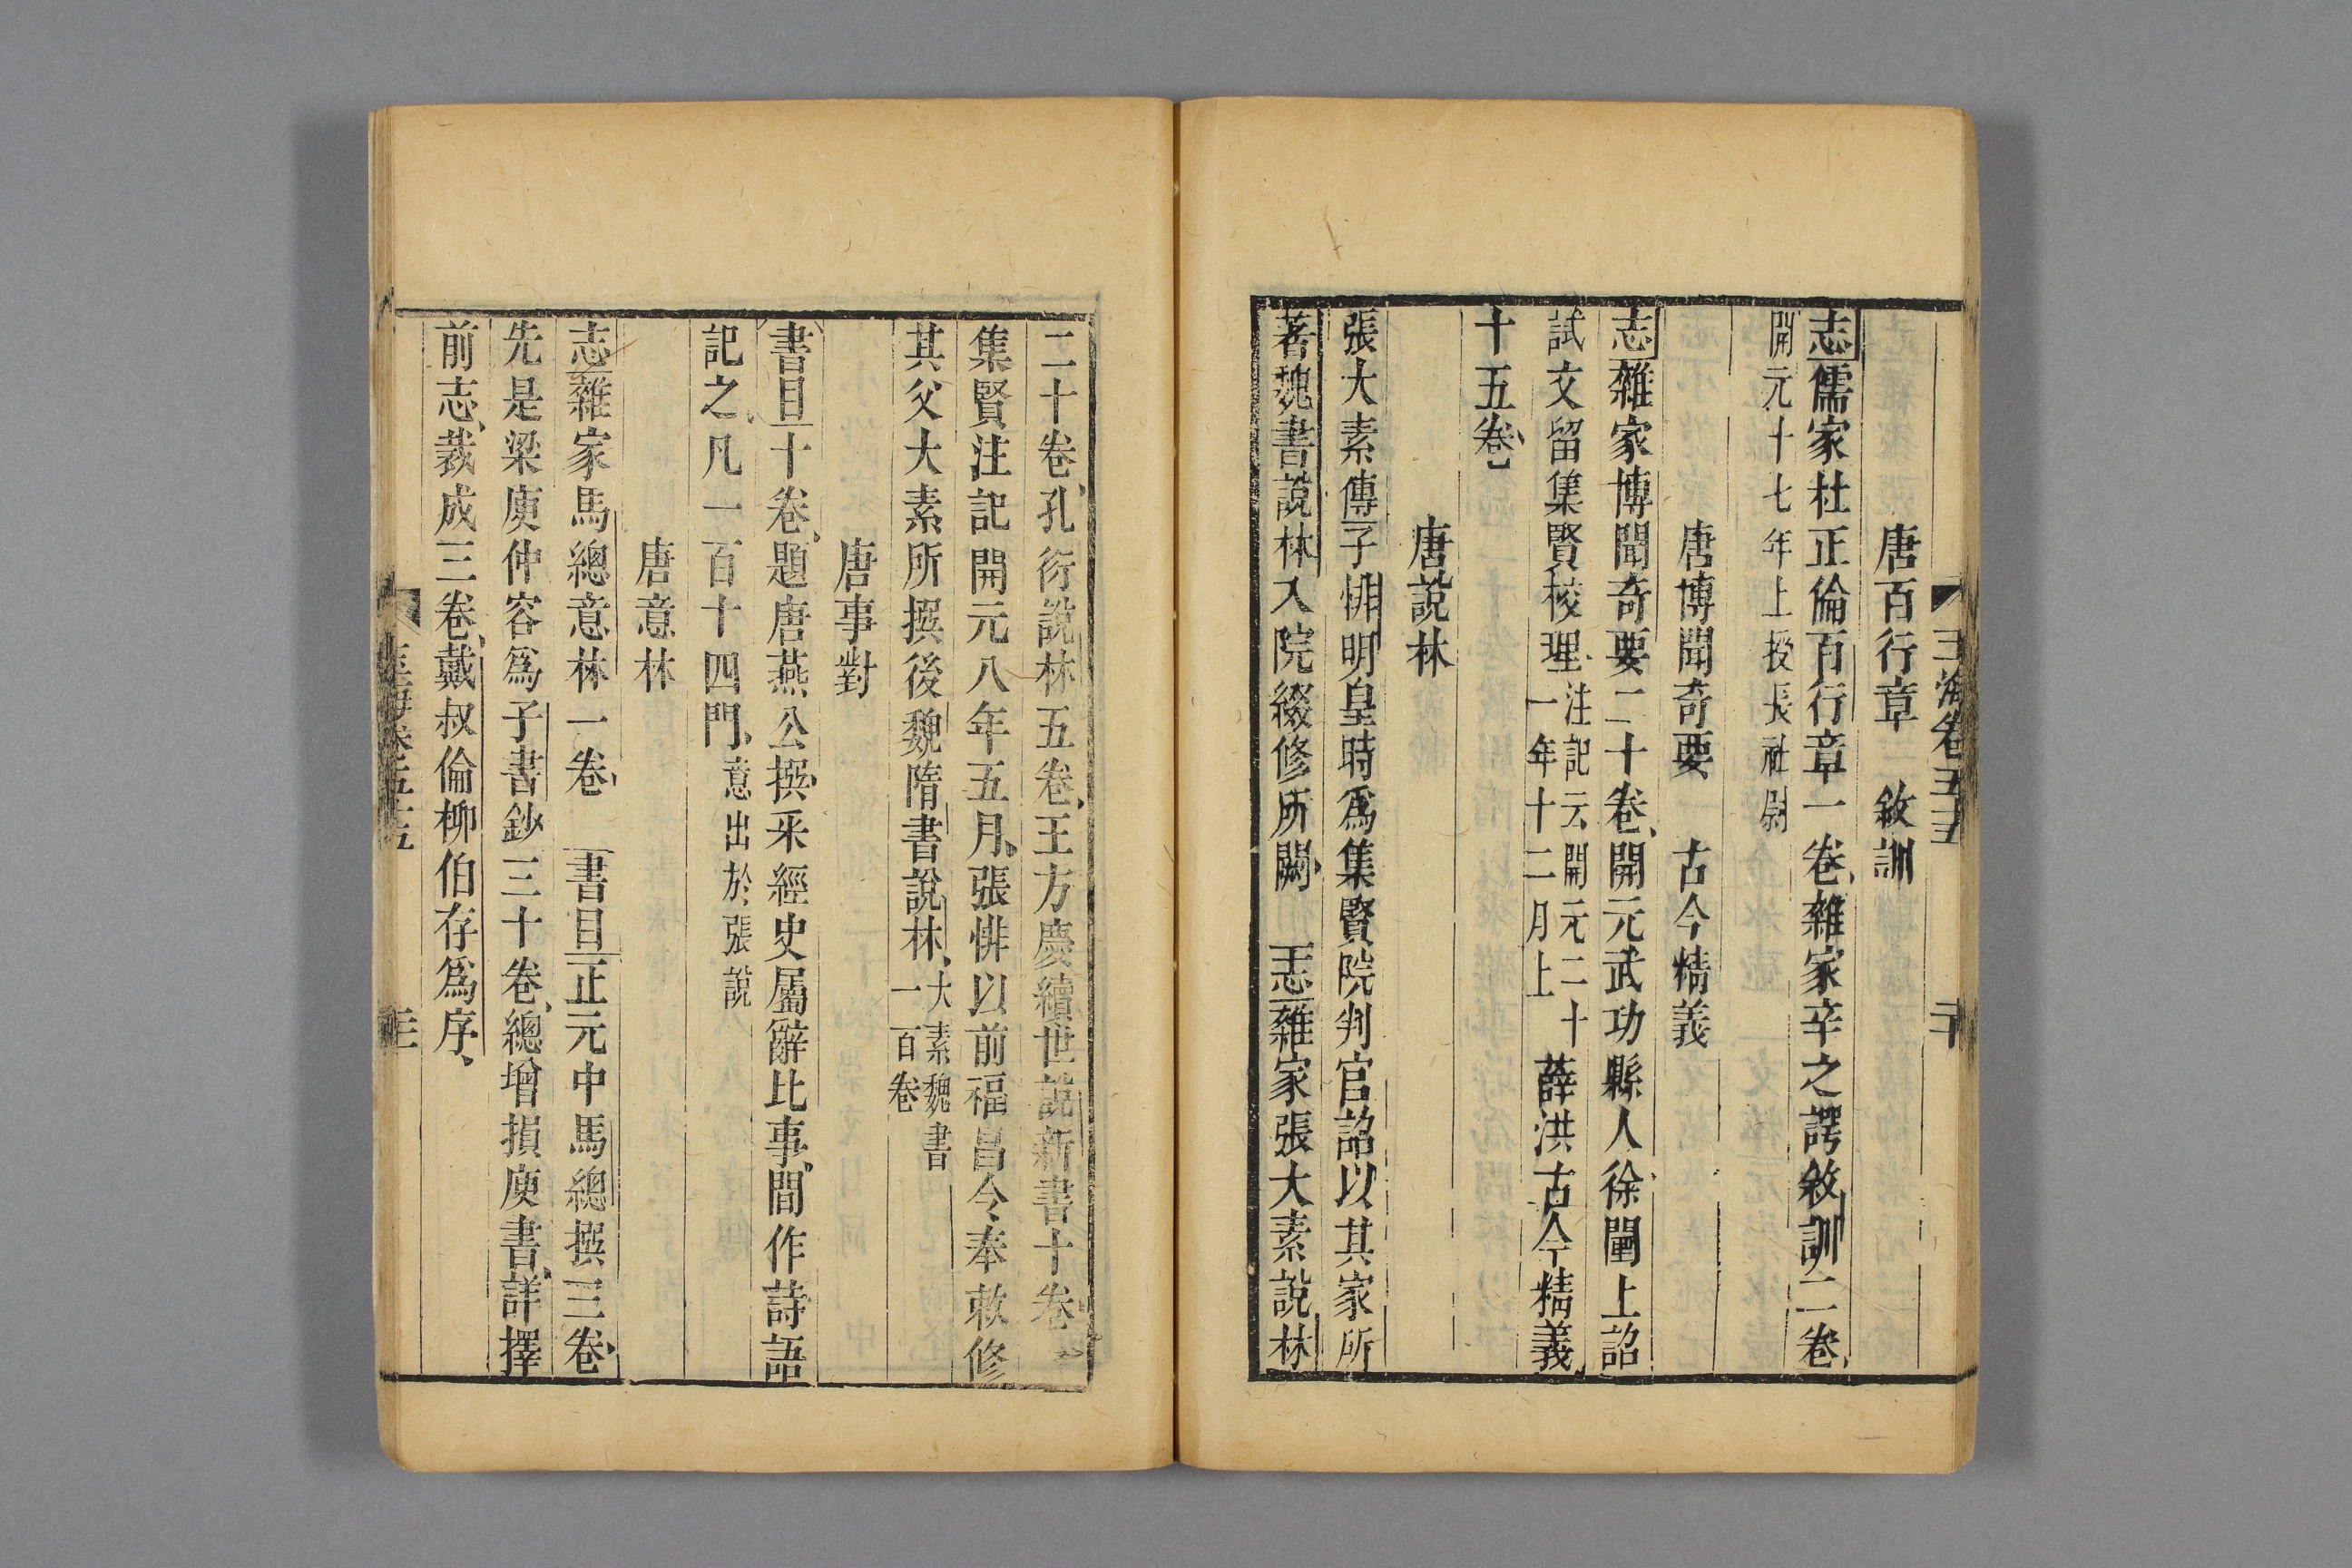 玉海卷五十五
二十
唐百行章 敘訓
志儒家杜正倫百行章一卷雜家辛之諤敘訓二卷
開元十七年上授長社尉
唐博聞奇要 古今精義
志雜家博聞奇要二十卷開元武功縣人徐闉上詔
試文留集賢校理注記云開元二十一年十二月上薛洪古今精義
十五卷
唐說林
張大素傳子悱明皇時爲集賢院判官詔以其家所
著魏書說林入院綴修所闕 志雜家張大素說林
二十卷孔衍說林五卷王方慶續世說新書十卷
集賢注記開元八年五月張悱以前福昌令奉敕修
其父大素所撰後魏隋書說林大素魏書一百卷
唐事對
書目十卷題唐燕公撰采經史屬辭比事間作詩語
記之凡一百十四門意出於張說
唐意林
志雜家馬總意林一卷 書目正元中馬總撰三卷
先是梁庾仲容爲子書鈔三十卷總增損庾書詳擇
前志裁成三卷戴叔倫柳伯存爲序
玉海卷五十五